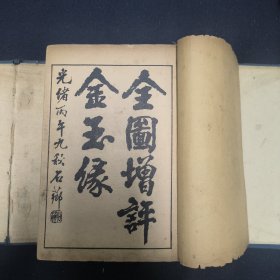 全圖增評
金玉緣
光緒丙午九秋石薌